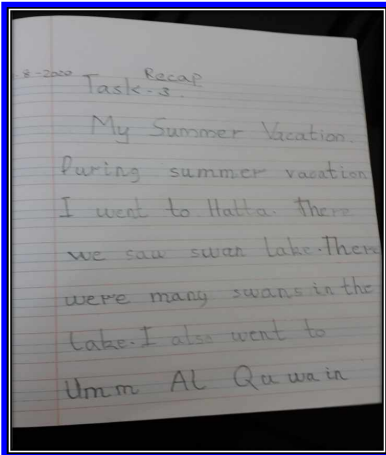 8-2020
Recap
Task-3.
My Summer Vacation.
During summer vacation
I went to Hatta. There
we saw swan lake. There
were many swans in the
lake. I also went to
Umm Al Quwain